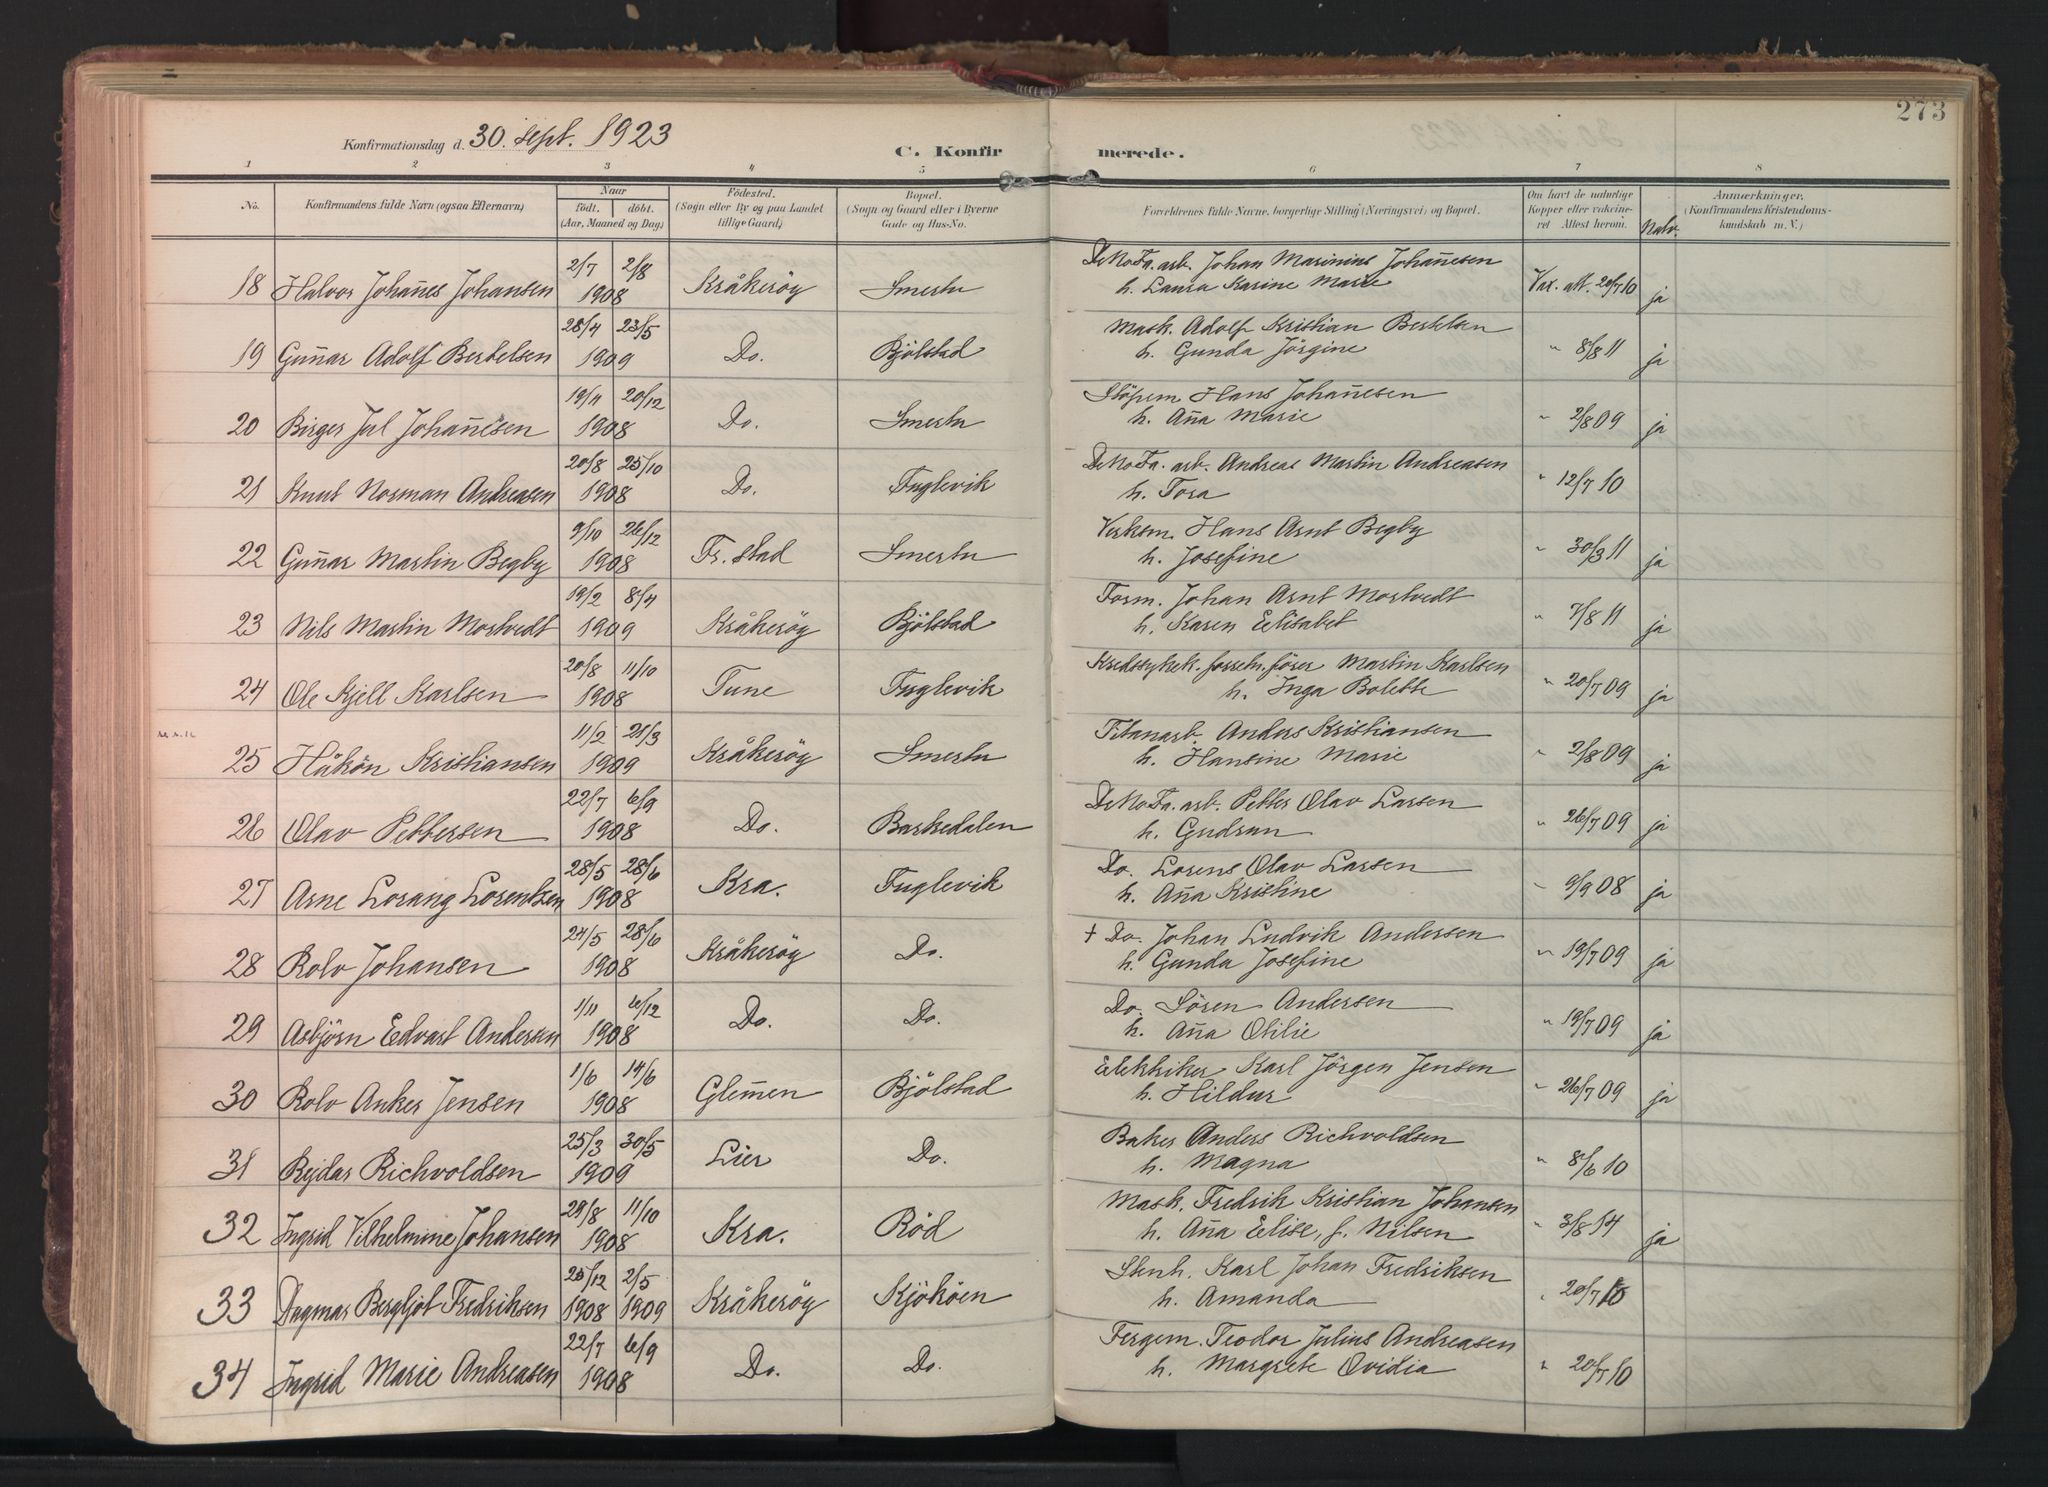 273
Konfirmationsdag d. 30. sept. 1923
C. Konfirmerede.
1 2 3 4 5 6 7 8
No. Konfirmandens fulde Navn (ogsaa Efternavn) Naar født. døbt. (Aar, Maaned og Dag) Födested. (Sogn eller By og paa Landet tillige Gaard) Bopæl. (Sogn og Gaard eller i Byerne Gade og Hus-No. Forældrenes fulde Navne, borgerlige Stilling (Næringsvei) og Bopæl. Om havt de naturlige Kopper eller vakcineret Attest herom. Natv. Anmærkninger. (Konfirmandens Kristendomskundskab m. V.)
18 Halvor Johan̄es Johansen 2/7 2/8 1908 Kråkeröy Smertu DeNoFa. arb. Johan Marinius Johan̄esen
h. Laura Karine Marie Vax. att. 20/7 10 ja
19 Gun̄ar Adolf Bertelsen 28/4 23/5 1909 Do. Bjölstad Mask. Adolf Kristian Bertelsen
h. Gunda Jörgine " 8/8 11 ja
20 Birger Jul Johan̄esen 19/4 20/12 1908 Do. Smertu Stöpem. Hans Johan̄esen
h. An̄a Marie " 2/8 09 ja
21 Knut Norman Andreasen 20/8 25/10 1908 Do. Fuglevik DeNoFa. arb. Andreas Martin Andreasen
h. Tora " 12/7 10
22 Gun̄ar Martin Begby 9/10 26/12 1908 Fr.stad Smertu Verksm. Hans Arnt Begby
h. Josefine " 30/3 11 ja
23 Nils Martin Mortvedt 19/2 8/4 1909 Kråkeröy Bjölstad Form. Johan Arnt Mortvedt
h. Karen Elisabet " 7/8 11 ja
24 Ole Kjell Karlsen 20/8 11/10 1908 Tune Fuglevik Kredssykek. forretn.förer Martin Karlsen
h. Inga Bolette " 20/7 09 ja
25 Håkon Kristiansen 11/2 21/3 1909 Kråkeröy Smertu Titanarb. Anders Kristiansen
h. Hansine Marie " 2/8 09 ja
26 Olav Pettersen 22/7 6/9 1908 Do. Barkedalen DeNoFa. arb. Petter Olav Larsen
h. Gudrun " 26/7 09 ja
27 Arne Lorang Lorentzen 28/5 28/6 1908 Kra. Fuglevik Do. Lorens Olav Larsen
h. An̄a Kristine " 9/9 08 ja
28 Rolv Johansen 24/5 28/6 1908 Kråkeröy Do. † Do. Johan Ludvik Andersen
h. Gunda Josefine " 19/7 09 ja
29 Asbjörn Edvart Andersen 1/11 6/12 1908 Do. Do. Do. Sören Andersen
h. An̄a Otilie " 19/7 09 ja
30 Rolv Anker Jensen 1/6 14/6 1908 Glem̄en Bjölstad Elektriker Karl Jörgen Jensen
h. Hildur " 26/7 09 ja
31 Rejdar Richvoldsen 25/3 30/5 1909 Lier Do. Baker Anders Richvoldsen
h. Magna " 8/6 10
32 Ingrid Vilhelmine Johansen 29/8 11/10 1908 Kra. Röd Mask. Fredrik Kristian Johansen
h. An̄a Elise, f. Nilsen " 3/8 14 ja
33 Dagmar Bergljot Fredriksen 25/12 1908 2/5 1909 Kråkeröy Kjököen Stenh. Karl Johan Fredriksen
h. Amanda " 20/7 10
34 Ingrid Marie Andreasen 22/7 6/9 1908 Do. Do. Fergem. Teodor Julius Andreasen
h. Margrete Ovidia " 20/7 10